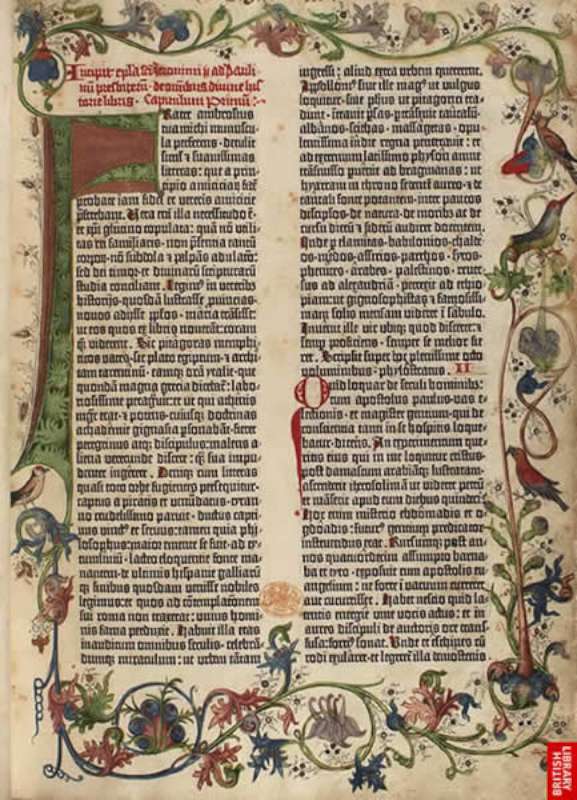 Incipit epl̃a sc̃i iheronimi ad Pauli
nũ presbiterũ · de omnibus divine his
torie libris · Capitulum Primũ:·
Frater ambrosius
tua michi munuscu
la perferens · detulit
simul et suavissimas
litteras: que a prin
cipio amicicia
probate iam fidei et veteris amicicie
preferebant. Vera eni illa necessitudo ẽ·
et xp̃i glutino copulata: quã nõ utili
tas rei familiaris · nõ presentia tantũ
corporũ · nõ subdola et palpãs adulatio:
sed dei timor · et divinarũ scripturarũ
studia conciliant. Legimus in veteribs
historijs · quosdã lustrasse provincias
novos adijsse pplõs · maria trãsisse·
ut eos quos ex libris noverãt: coram
quoq; viderent. Sic pitagoras memphi
ticos vates · sic plato egiptum · et archi
tam tarentinũ · eamq; orã ytalie · que
quondã magna grecia dicebat̃: labo
riosissime peragravit: et ut qui athenis
mgr̃ erat et potens · cuiusq; doctrinas
achademie gignasia psonabãt · fieret
peregrinus atq; discipulus: malens a
liena verecunde discere: q̃ sua impu
denter ingerere. Deniq; cum litteras
quasi toto orbe fugientes persequitur·
captus a piratis et venũdatus · tyran
no crudelissimo paruit · ductus capti
vus vinct⁹ et servus: tamen quia phi
losophus: maior emente se fuit · ad ty
tumlivium · lacteo eloquentie fonte ma
nantem · de ultimis hispanie galliarũ
q; finibus quosdam venisse nobiles
legimus: et quos ad cõtemplacionem
sui roma non traxerat: unius homi
nis fama perduxit. Habuit illa etas
inauditum omnibus seculis · celebrã
dumq; miraculum: ut urbem tantam
ingressi: aliud extra urbem quererent.
Appollonius sive ille magus ut vulgus
loquitur · sive phus ut pitagorici tra
dunt · intravit psas · ptrãsivit caucasũ
albanos · scithas · massagetas · opu
lentissima indie regna penetravit: et
ad extremum latissimo physon amne
trãsmisso puenit ad bragmanas: ut
hyarcam in throno sedentẽ aureo · et de
tantali fonte potantem · inter paucos
discipulos · de natura · de moribus ac de
cursu dierũ et siderũ audiret docentem.
Inde p elamitas · babilonios · chalde
os · medos · assirios · parthos · syros
phenices · arabes · palestinos · rever
sus ad alexandriã · perrexit ad ethio
piam: ut gignosophistas et famosissi
mam solis mensam videret ĩ sabulo.
Invenit ille vir ubiq; quod disceret: et
semp proficiens · semper se melior fie
ret. Scripsit super hoc plenissime octo
voluminibus · phylostratus. II
Quid loquar de seculi hominibs:
cum apostolus paulus · vas e
lectionis · et magister gentium · qui de
conscientia tanti in se hospitis loque
batur · dicens. An experimentum que
ritis eius qui in me loquitur cristus·
post damascum arabiãq; lustratam·
ascenderit iherosolimã ut videret petrũ
et mãserit apud eum diebus quindeci.
Hoc enim misterio ebdomadis et o
gdoadis: futur⁹ gentium predicator
instruendus erat. Rursumq; post an
nos quatuordecim assumpto barna
ba et tyto · exposuit cum apostolis eu
angelium: ne forte ĩ vacuum curreret
aut cucurrisset. Habet nescio quid la
tentis energie vive vocis actus: et in
aures discipuli de auctoris ore trans
fusa: fortius sonat. Unde et eschines cũ
rodi exularet · et legeret̃ illa demostenis
BRITISH
LIBRARY